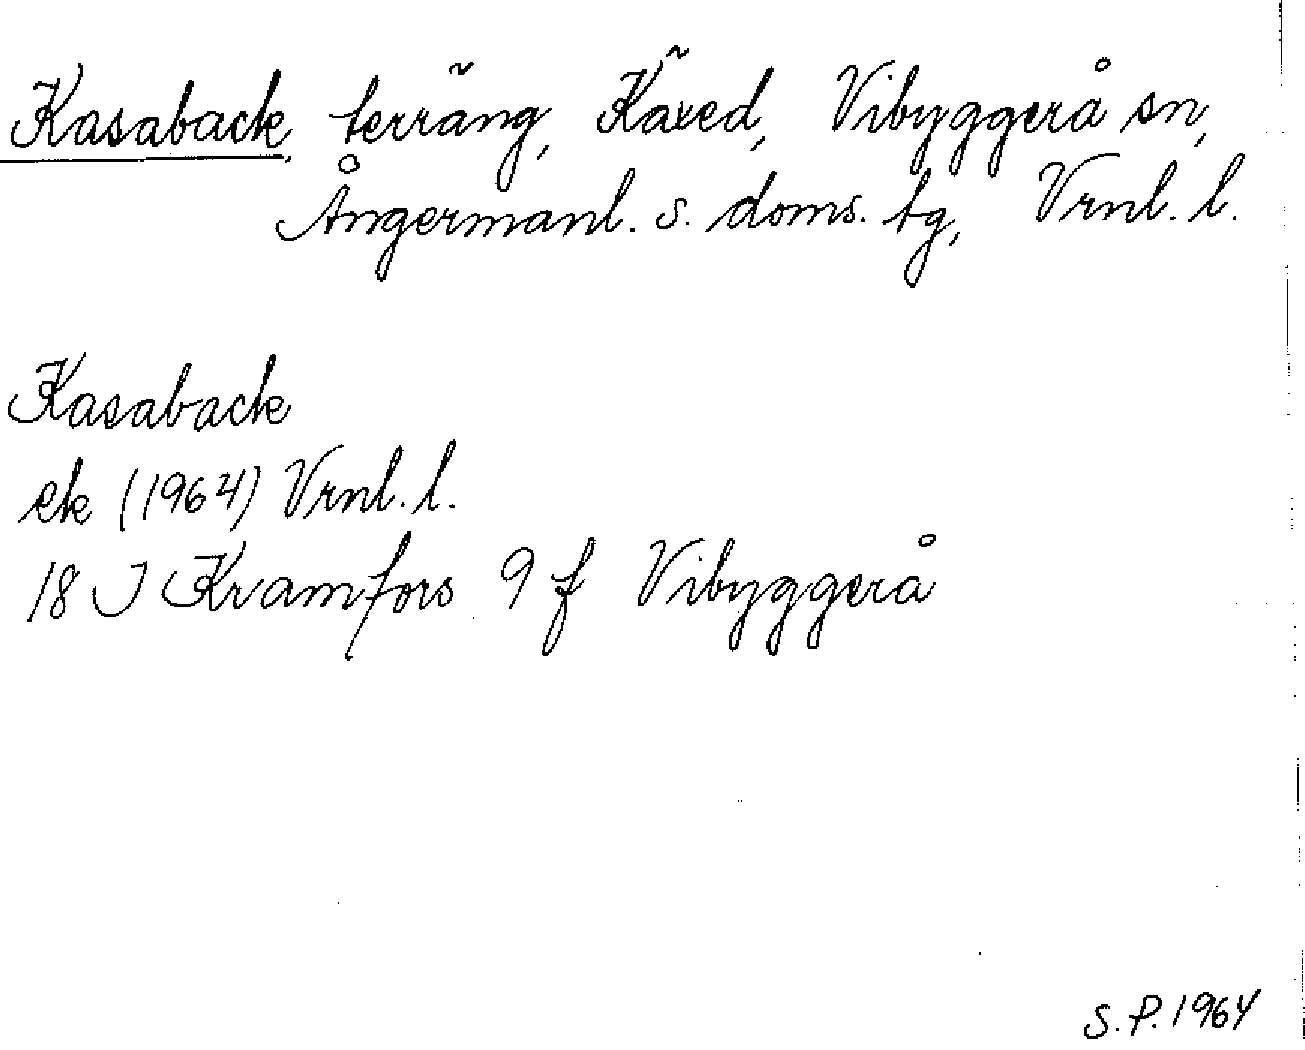 Kasaback, terräng, Käxed, Vibyggerå sn,
Ångermanl. s. doms. tg, Vrnl. l.
Kasaback
ek (1964) Vrnl. l.
18 J Kramfors 9 f Vibyggerå
S.P. 1964